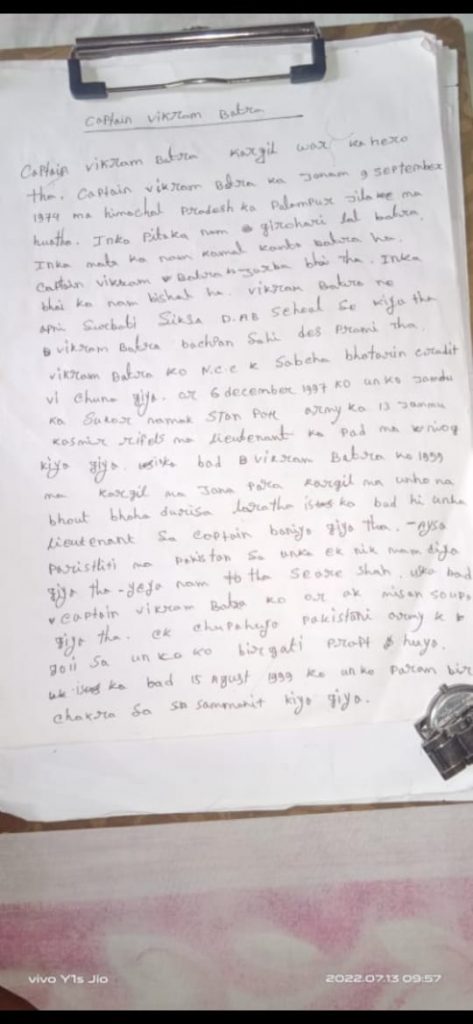 Captain vikram Batra
Captain vikram Batra Kargil war ka hero
tha. Captain vikram Batra ka Janam 9 september
1974 ma himachal Pradesh ka Palampur Jila ma
huatha. Inka Pitaka nam girdhari lal batra.
Inka mata ka nam kamal kanta batra ha.
Captain vikram Batra bhai tha. Inka
bhai ka nam bishal ha. vikram Batra na
apni Siksa D.A.B School Sa kiya tha
vikram Batra bachpan Sahi des Prami tha.
vikram Batra ko N.C.C k Sabcha
vi chuna giya. or 6 december 1997 ko unko Jamdu
ka namak Stan Par army ka 13 Jammu
kasmir rifels ma lieutenant ka Pad ma
kiya giya. bad vikram Batra ko 1999
ma Kargil ma Jana Para Kargil ma unho na
bhout ka bad hi unka
lieutenant Sa Captain baniya giya tha. - aysa
Paristiti ma Pakistan Sa unka ek nik nam diya
giya tha - yeya nam to tha Seare Shah. uka bad
captain vikram Batra ko or ak misan soupa
giya tha. ek chupahuya pakistani army k
goli Sa unka ko birgati Prapt huya.
ka bad 15 Agust 1999 ko unko Param bir
chakra Sa sammanit kiya giya.
vivo Y1s Jio
2022.07.13 09:57